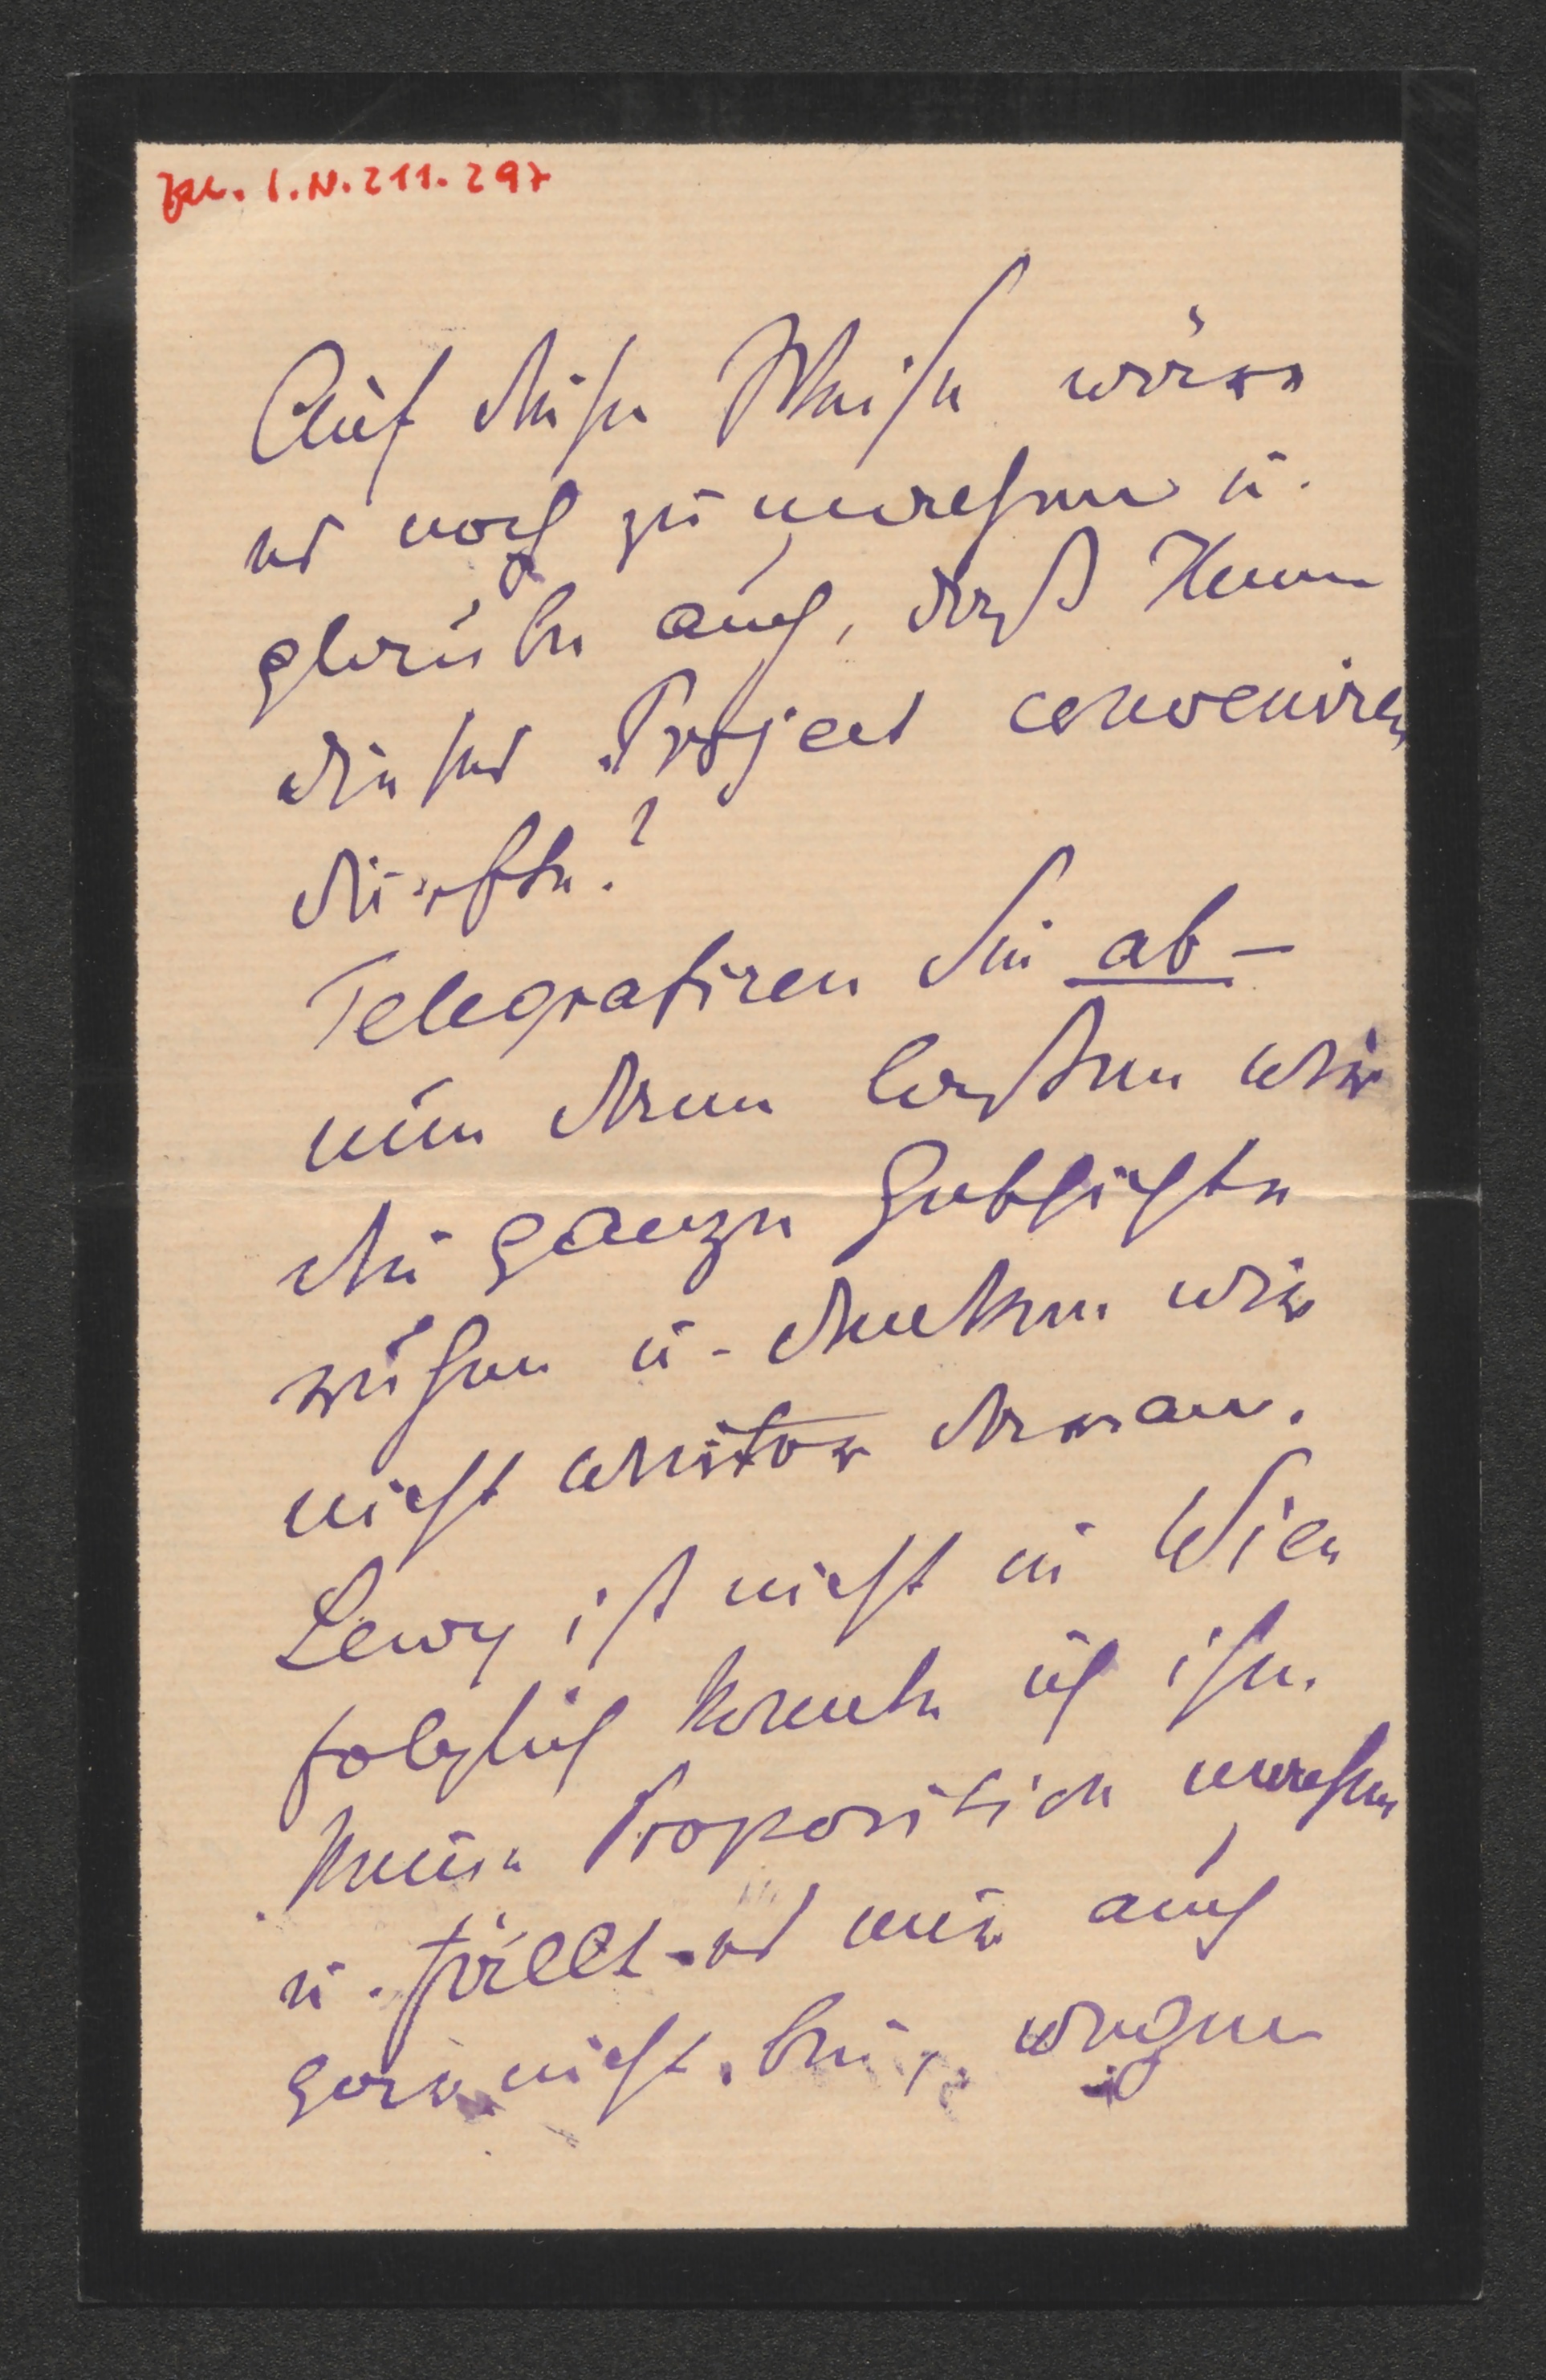 Zu. I.N. 211.297
Auf diese Weise wäre
es noch zu machen u.
glaube auch, daß Ihnen
dieses Project conveniren
dürfte?
Telegrafiren Sie ab –
nun dann lassen wir
die ganze Geschichte
ruhen u. denken wir
nicht weiter daran.
Lewy ist nicht in Wien
folglich konnte ich ihm
keine Proposition machen
u. fällt es mir auch
gar nicht bei, wegen